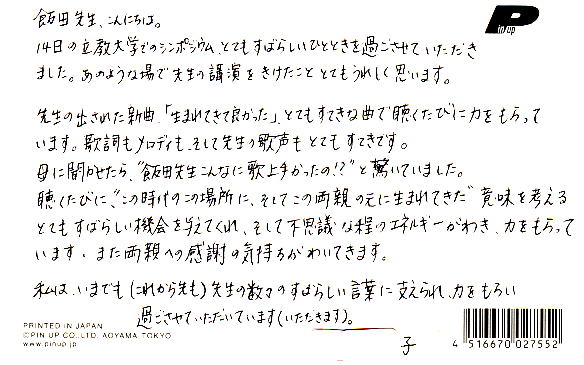 飯田先生、こんにちは。
14日の立教大学でのシンポジウム、とてもすばらしいひとときを過ごさせていただき
ました。あのような場で先生の講演をきけたこと とてもうれしく思います。
先生の出された新曲、「生まれてきて良かった」、とてもすてきな曲で聴くたびに力をもらって
います。歌詞もメロディも、そして先生の歌声もとてもすてきです。
母に聞かせたら、"飯田先生こんなに歌上手かったの!?"と驚いていました。
聴くたびに、"この時代のこの場所に、そしてこの両親の元に生まれてきた"意味を考える
とてもすばらしい機会を与えてくれ、そして不思議な程のエネルギーがわき、力をもらって
います。また両親への感謝の気持ちがわいてきます。
私は、いまでも(これから先も)先生の数々のすばらしい言葉に支えられ、力をもらい
過ごさせていただいています(いただきます)。
子
Pin up
PRINTED IN JAPAN
©PIN UP CO.,LTD, AOYAMA TOKYO
www.pinup.jp
4 516670 027552